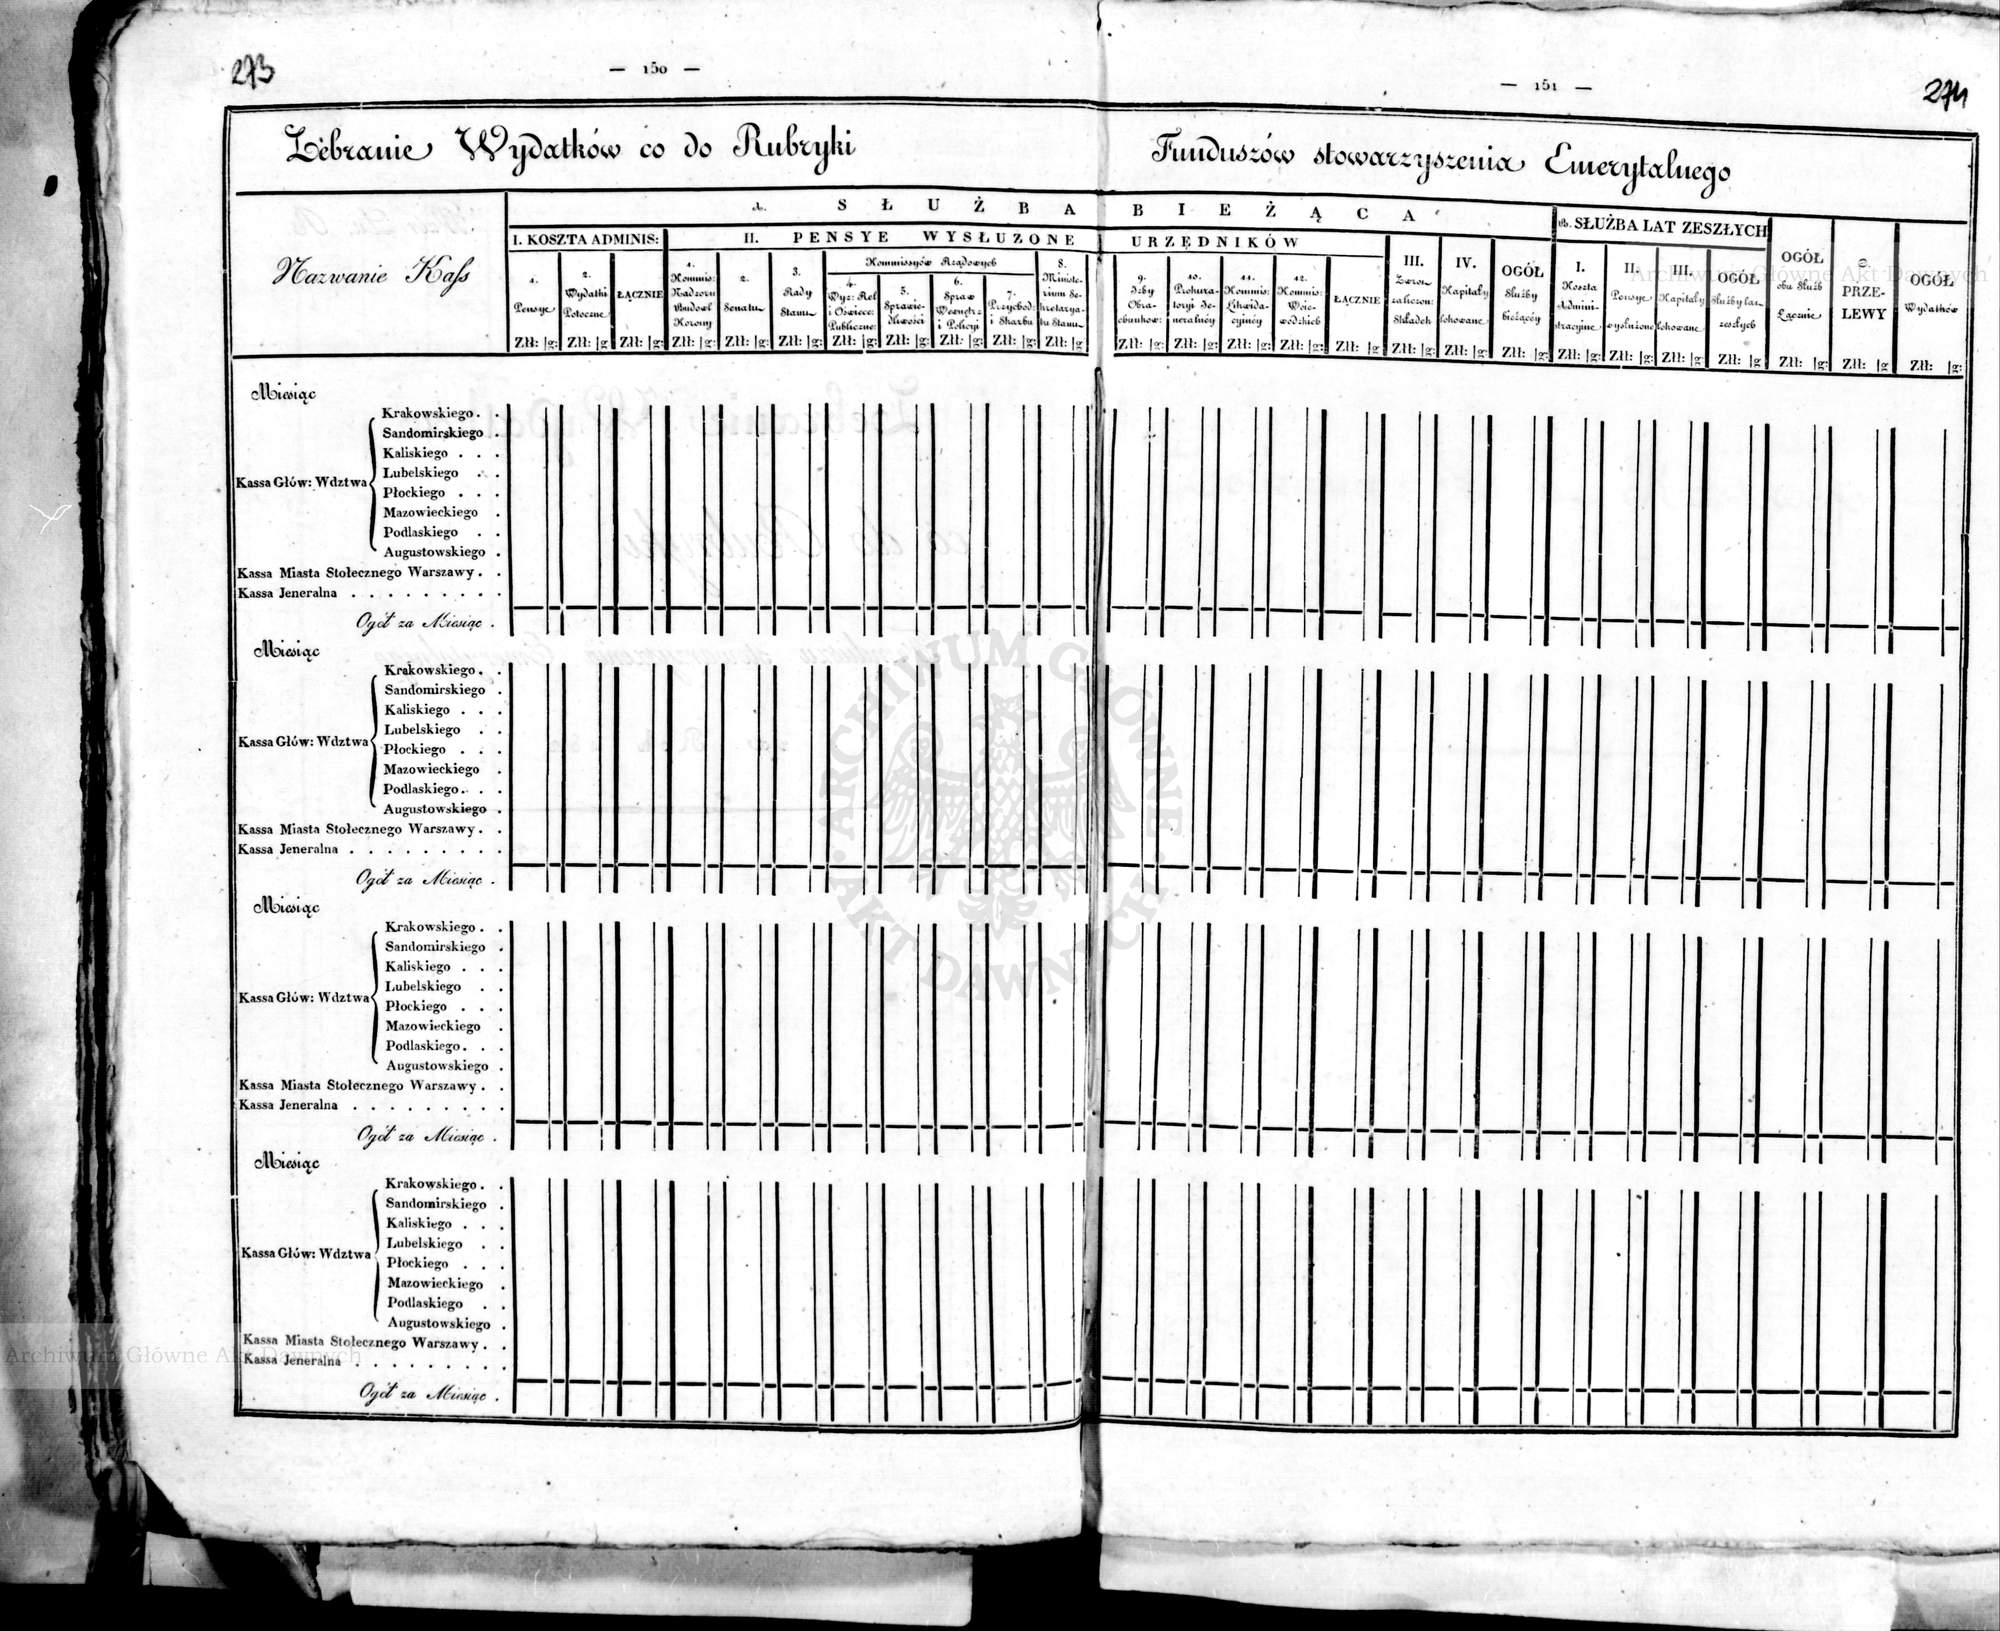 273
— 150 —
— 151 —
274
Zebranie Wydatków co do Rubryki
Funduszów stowarzyszenia Emerytalnego
Nazwanie Kass
A. SŁUŻBA BIEŻĄCA
B. SŁUŻBA LAT ZESZŁYCH
I. KOSZTA ADMINIS:
II. PENSYE WYSŁUZONE URZĘDNIKÓW
Kommissyów Rządowych
1. Pensye
2. Wydatki Potoczne
ŁĄCZNIE
1. Kommis: Nadzoru Budowl Korony
2. Senatu
3. Rady Stanu
4. Wyz: Rel i Oświece: Publiczne:
5. Sprawie-dliwości
6. Spraw Wewnętrz i Policyi
7. Przychod: i Skarbu
8. Ministe-rium Se-kretarya-tu Stanu
9. Izby Obra-chunkow:
10. Prokura-toryi Je-neralnéy
11. Kommis: Likwida-cyinéy
12. Kommis: Woie-wódzkich
ŁĄCZNIE
III. Zwrot zaliczon: Składek
IV. Kapitały lokowane
OGÓŁ Służby bieżącéy
I. Koszta Admini-stracyine
II. Pensye wysłużone
III. Kapitały lokowane
OGÓŁ Służby lat zeszłych
OGÓŁ obu Służb Łącznie
C. PRZE-LEWY
OGÓŁ Wydatków
Złł: |g: Złł: |g Złł: |g: Złł: |g: Złł: |g: Złł: |g: Złł: |g: Złł: |g: Złł: |g: Złł: |g: Złł: |g Złł: |g: Złł: |g: Złł: |g: Złł: |g: Złł: |g Złł: |g: Złł: |g Złł: |g: Złł: |g: Złł: |g: Złł: |g: Złł: |g: Złł: |g: Złł: |g Złł: |g:
Miesiąc
Krakowskiego . .
Sandomirskiego .
Kaliskiego . . .
Lubelskiego . .
Kassa Głów: Wdztwa
Płockiego . . .
Mazowieckiego .
Podlaskiego . .
Augustowskiego .
Kassa Miasta Stołecznego Warszawy . .
Kassa Jeneralna . . . . . . . . .
Ogół za Miesiąc .
Miesiąc
Krakowskiego . .
Sandomirskiego .
Kaliskiego . . .
Lubelskiego . .
Kassa Głów: Wdztwa
Płockiego . . .
Mazowieckiego .
Podlaskiego . . .
Augustowskiego .
Kassa Miasta Stołecznego Warszawy . .
Kassa Jeneralna . . . . . . . . .
Ogół za Miesiąc .
Miesiąc
Krakowskiego . .
Sandomirskiego .
Kaliskiego . . .
Lubelskiego . .
Kassa Głów: Wdztwa
Płockiego . . .
Mazowieckiego .
Podlaskiego . . .
Augustowskiego .
Kassa Miasta Stołecznego Warszawy . .
Kassa Jeneralna . . . . . . . . .
Ogół za Miesiąc .
Miesiąc
Krakowskiego . .
Sandomirskiego .
Kaliskiego . . .
Lubelskiego . .
Kassa Głów: Wdztwa
Płockiego . . .
Mazowieckiego .
Podlaskiego . .
Augustowskiego .
Kassa Miasta Stołecznego Warszawy . .
Kassa Jeneralna . . . . . . . . .
Ogół za Miesiąc .
ARCHIWUM GŁÓWNE AKT DAWNYCH
Archiwum Główne Akt Dawnych
Archiwum Główne Akt Dawnych